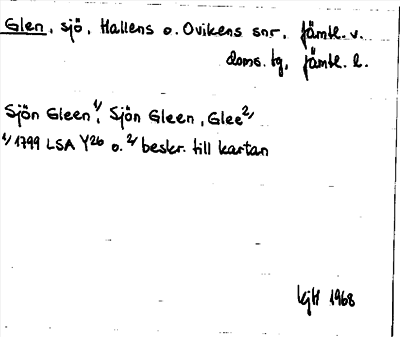 Glen, sjö, Hallens o. Ovikens snr, Jämtl. v.
doms. tg, Jämtl. l.
Sjön Gleen 1/, Sjön Gleen, Glee 2/
1/ 1799 LSA Y26 o. 2/ beskr. till kartan
KjH 1968